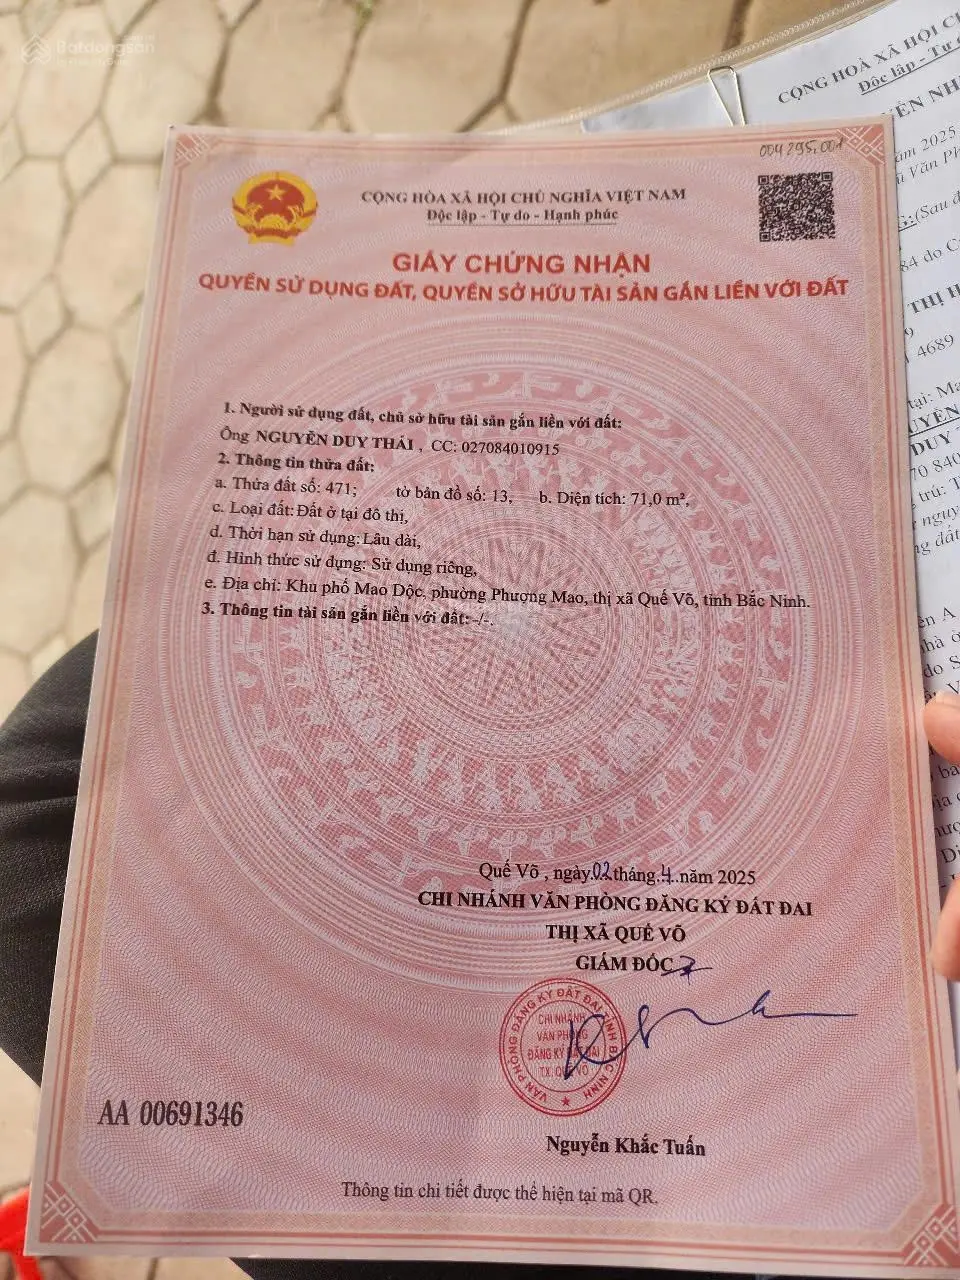 Batdongsan
004295.001
CỘNG HÒA XÃ HỘI CHỦ NGHĨA VIỆT NAM
Độc lập - Tự do - Hạnh phúc
GIẤY CHỨNG NHẬN
QUYỀN SỬ DỤNG ĐẤT, QUYỀN SỞ HỮU TÀI SẢN GẮN LIỀN VỚI ĐẤT
1. Người sử dụng đất, chủ sở hữu tài sản gắn liền với đất:
Ông NGUYỄN DUY THÁI , CC: 027084010915
2. Thông tin thửa đất:
a. Thửa đất số: 471; tờ bản đồ số: 13, b. Diện tích: 71,0 m²,
c. Loại đất: Đất ở tại đô thị,
d. Thời hạn sử dụng: Lâu dài,
đ. Hình thức sử dụng: Sử dụng riêng,
e. Địa chỉ: Khu phố Mao Dộc, phường Phượng Mao, thị xã Quế Võ, tỉnh Bắc Ninh.
3. Thông tin tài sản gắn liền với đất: -/-.
Quế Võ , ngày 02 tháng 4 năm 2025
CHI NHÁNH VĂN PHÒNG ĐĂNG KÝ ĐẤT ĐAI
THỊ XÃ QUẾ VÕ
GIÁM ĐỐC
VĂN PHÒNG ĐĂNG KÝ ĐẤT ĐAI TỈNH BẮC NINH
CHI NHÁNH
VĂN PHÒNG
ĐĂNG KÝ ĐẤT ĐAI
TX. QUẾ VÕ
Nguyễn Khắc Tuấn
AA 00691346
Thông tin chi tiết được thể hiện tại mã QR.
CỘNG HOÀ XÃ HỘI
Độc lập - Tự
năm 2025
Văn
(Sau
84 do
THỊ
4689
tại:
DUY
trú:
đất
nhà ở
do